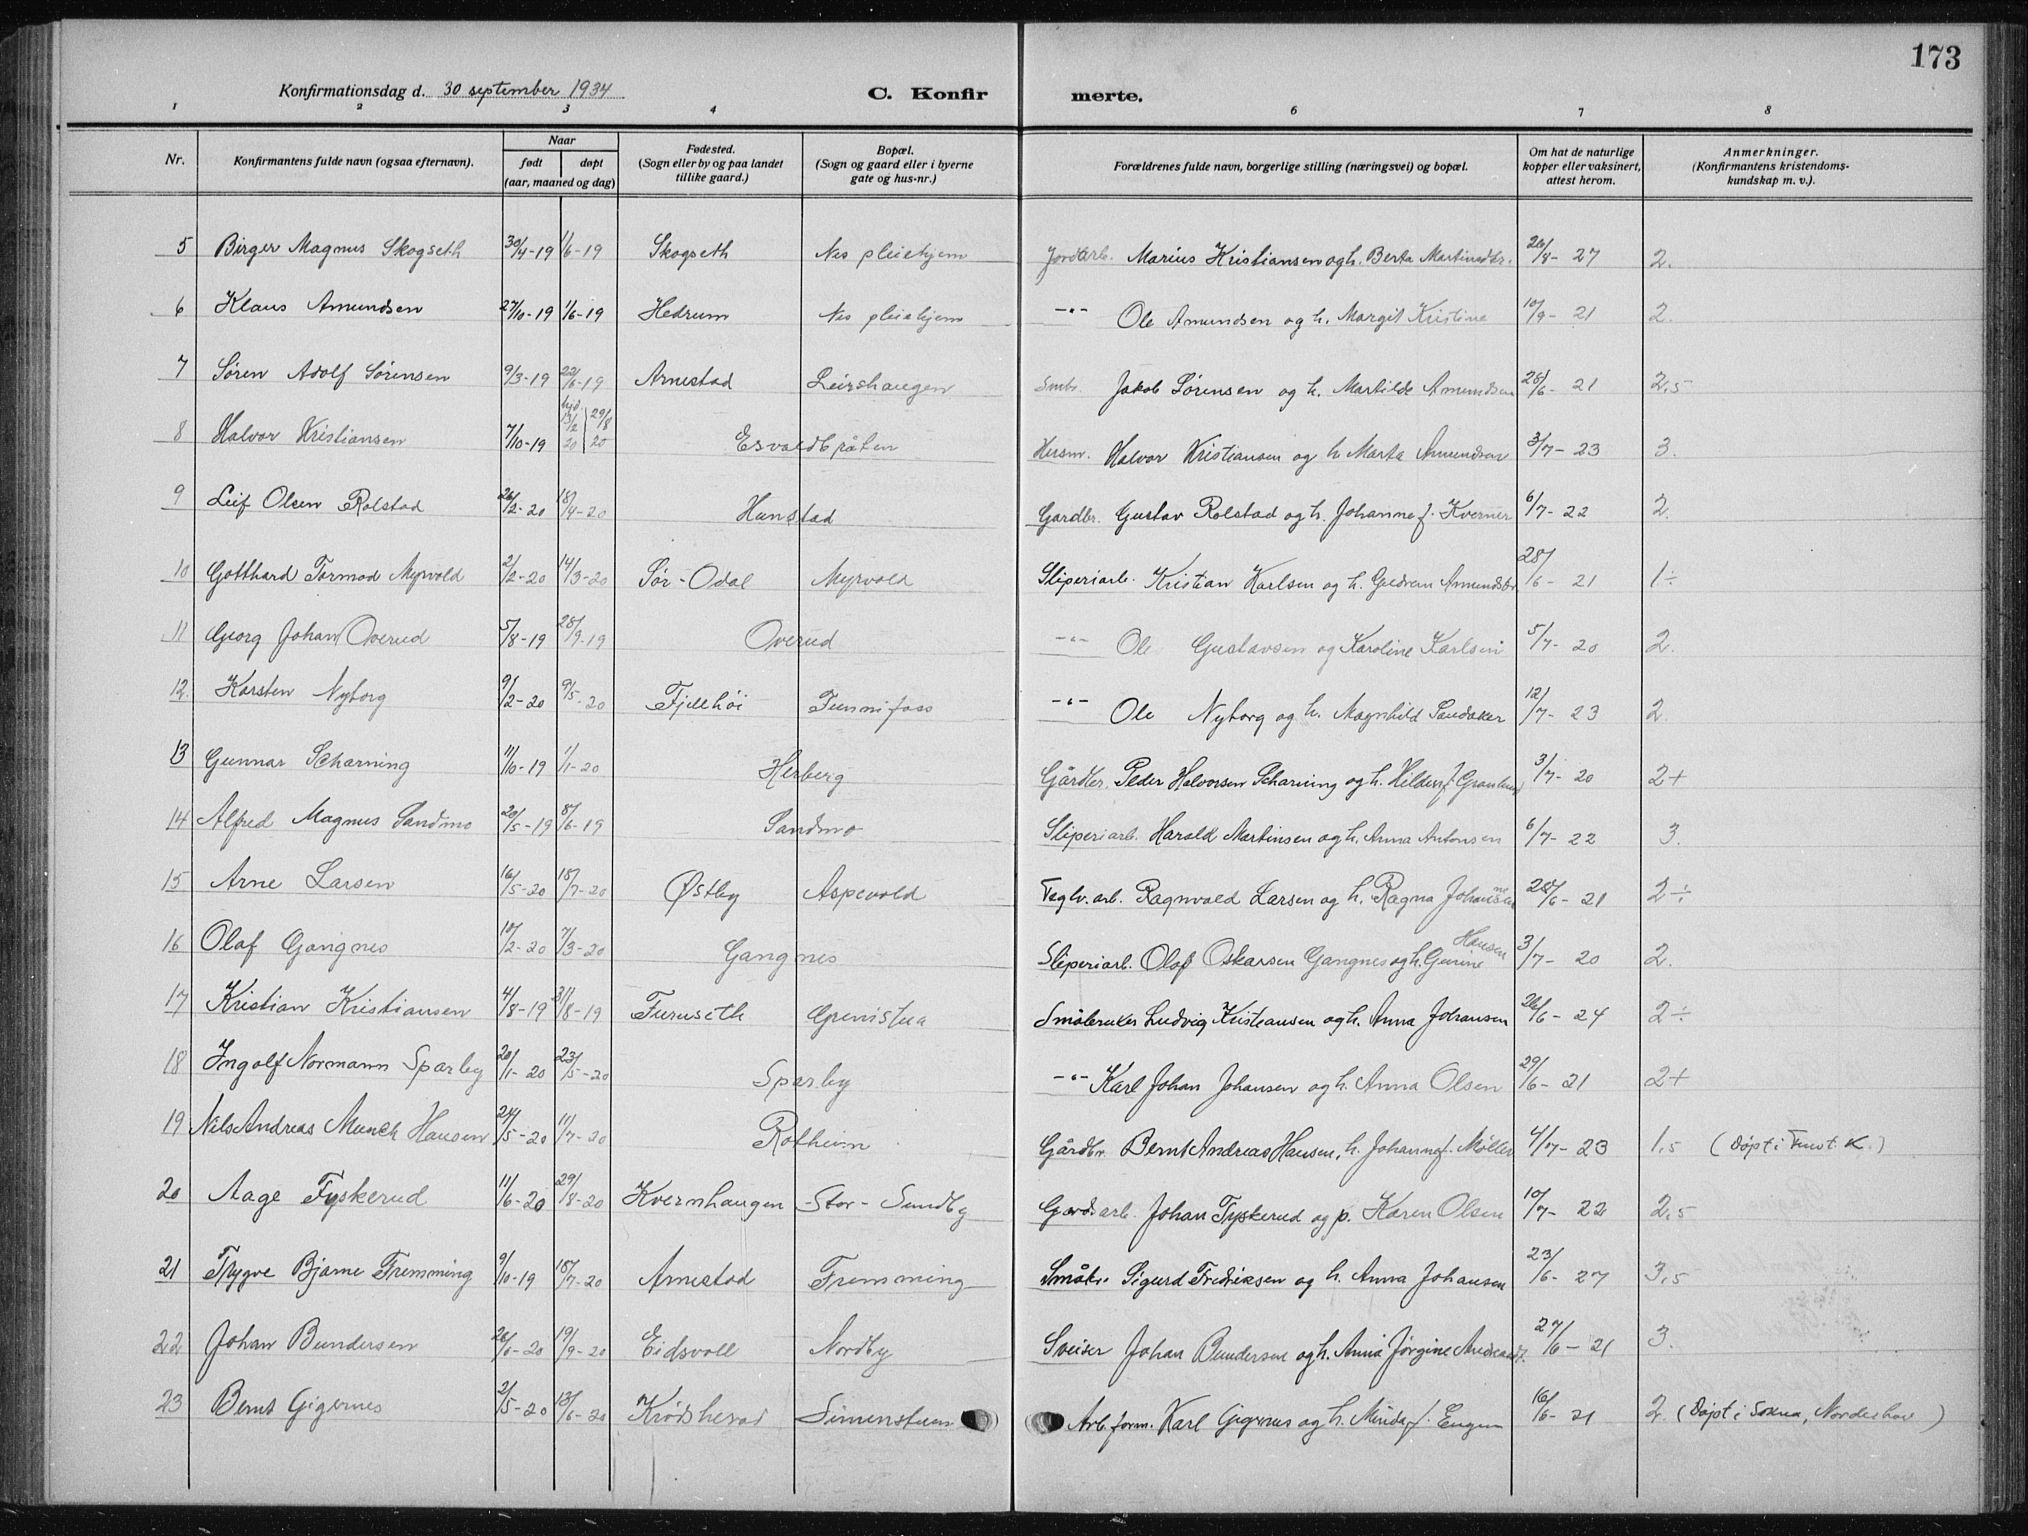 173
Konfirmationsdag d. 30 september 1934
C. Konfir
merte.
1 2 3 4 6 7 8
Nr.
Konfirmantens fulde navn (ogsaa efternavn).
Naar
født
døpt
(aar, maaned og dag)
Fødested.
(Sogn eller by og paa landet
tillike gaard.)
Bopæl.
(Sogn og gaard eller i byerne
gate og hus-nr.)
Forældrenes fulde navn, borgerlige stilling (næringsvei) og bopæl.
Om hat de naturlige
kopper eller vaksinert,
attest herom.
Anmerkninger.
(Konfirmantens kristendoms-
kundskap m. v.).
5 Birger Magnus Skogseth 30/4-19 1/6-19 Skogseth Nes pleiehjem Jordarb. Marius Kristiansen og h. Berta Martinsdtr. 26/8-27 2.
6 Klaus Amundsen 27/10-19 1/6-19 Hedrum Nes pleiehjem -"- Ole Amundsen og h. Margit Kristine 10/9-21 2.
7 Søren Adolf Sørensen 9/3-19 22/6-19 Arnestad Leirshaugen Smbr. Jakob Sørensen og h. Martilde Amundsen 28/6-21 2,5
8 Halvor Kristiansen 7/10-19 hjd. 13/2 20 29/8 20 Esvaldbråten Husm. Halvor Kristiansen og h. Marta Amundsen 3/7-23 3.
9 Leif Olsen Rolstad 26/2-20 18/4-20 Hunstad Gardbr. Gustav Rolstad og h. Johanne f. Kverner 6/7-22 2.
10 Gotthard Tormod Myrvold 2/2-20 14/3-20 Sør-Odal Myrvold Sliperiarb. Kristian Karlsen og h. Gudrun Amundsdtr 28/6-21 1÷
11 Georg Johan Overud 5/8-19 28/9-19 Overud -"- Ole Gustavsen og Karoline Karlsen 5/7-20 2.
12. Karsten Nyborg 9/2-20 9/5-20 Fjellhöi Funnifoss -"- Ole Nyborg og h. Magnhild Sandaker 12/7-23 2.
13 Gunnar Scharning 11/10-19 1/1-20 Herberg Gårdbr. Peder Halvorsen Scharning og h. Hildur f. Granlund 3/7-20 2+
14 Alfred Magnus Sandmo 20/5-19 8/6-19 Sandmo Sliperiarb. Harald Martinsen og h. Anna Antonsen 6/7-22 3.
15 Arne Larsen 16/5-20 18/7-20 Østby Aspevold Teglv. arb. Ragnvald Larsen og h. Ragna Johannesen 28/6-21 2÷
16 Olaf Gangnes 10/2-20 7/3-20 Gangnes Sliperiarb. Olaf Oskarsen Gangnes og h. Gurine Hansen 3/7-20 2.
17 Kristian Kristiansen 4/8-19 31/8-19 Furuseth Grenistua Småbruker Ludvig Kristiansen og h. Anna Johansen 26/6-24 2÷
18 Ingolf Normann Sparby 20/1-20 23/5-20 Sparby -"- Karl Johan Johansen og h. Anna Olsen 29/6-21 2+
19 Nils Andreas Munch Hansen 24/5-20 11/7-20 Rotheim Gårdbr. Bernt Andreas Hansen, h. Johanne f. Møller 4/7-23 1,5 (Døpt i Tunst. K.)
20 Aage Tyskerud 11/6-20 29/8-20 Kvernhaugen Stor-Sundby Gardsarb. Johan Tyskerud og p. Karen Olsen 10/7-22 2,5
21 Trygve Bjarne Fremming 9/10-19 18/7-20 Arnestad Fremming Småbr. Sigurd Fredriksen og h. Anna Johansen 23/6-27 3,5
22 Johan Bundersen 26/6-20 19/9-20 Eidsvoll Nordby Sveiser Johan Bundersen og h. Anna Jørgine 27/6-21 3.
23 Bernt Gigernes 2/5-20 13/6-20 Krødsherad Simenstuen Arb.form. Karl Gigernes og h. Minda f. Engen 16/6-21 2. (Døpt i Sokna, Norderhov)